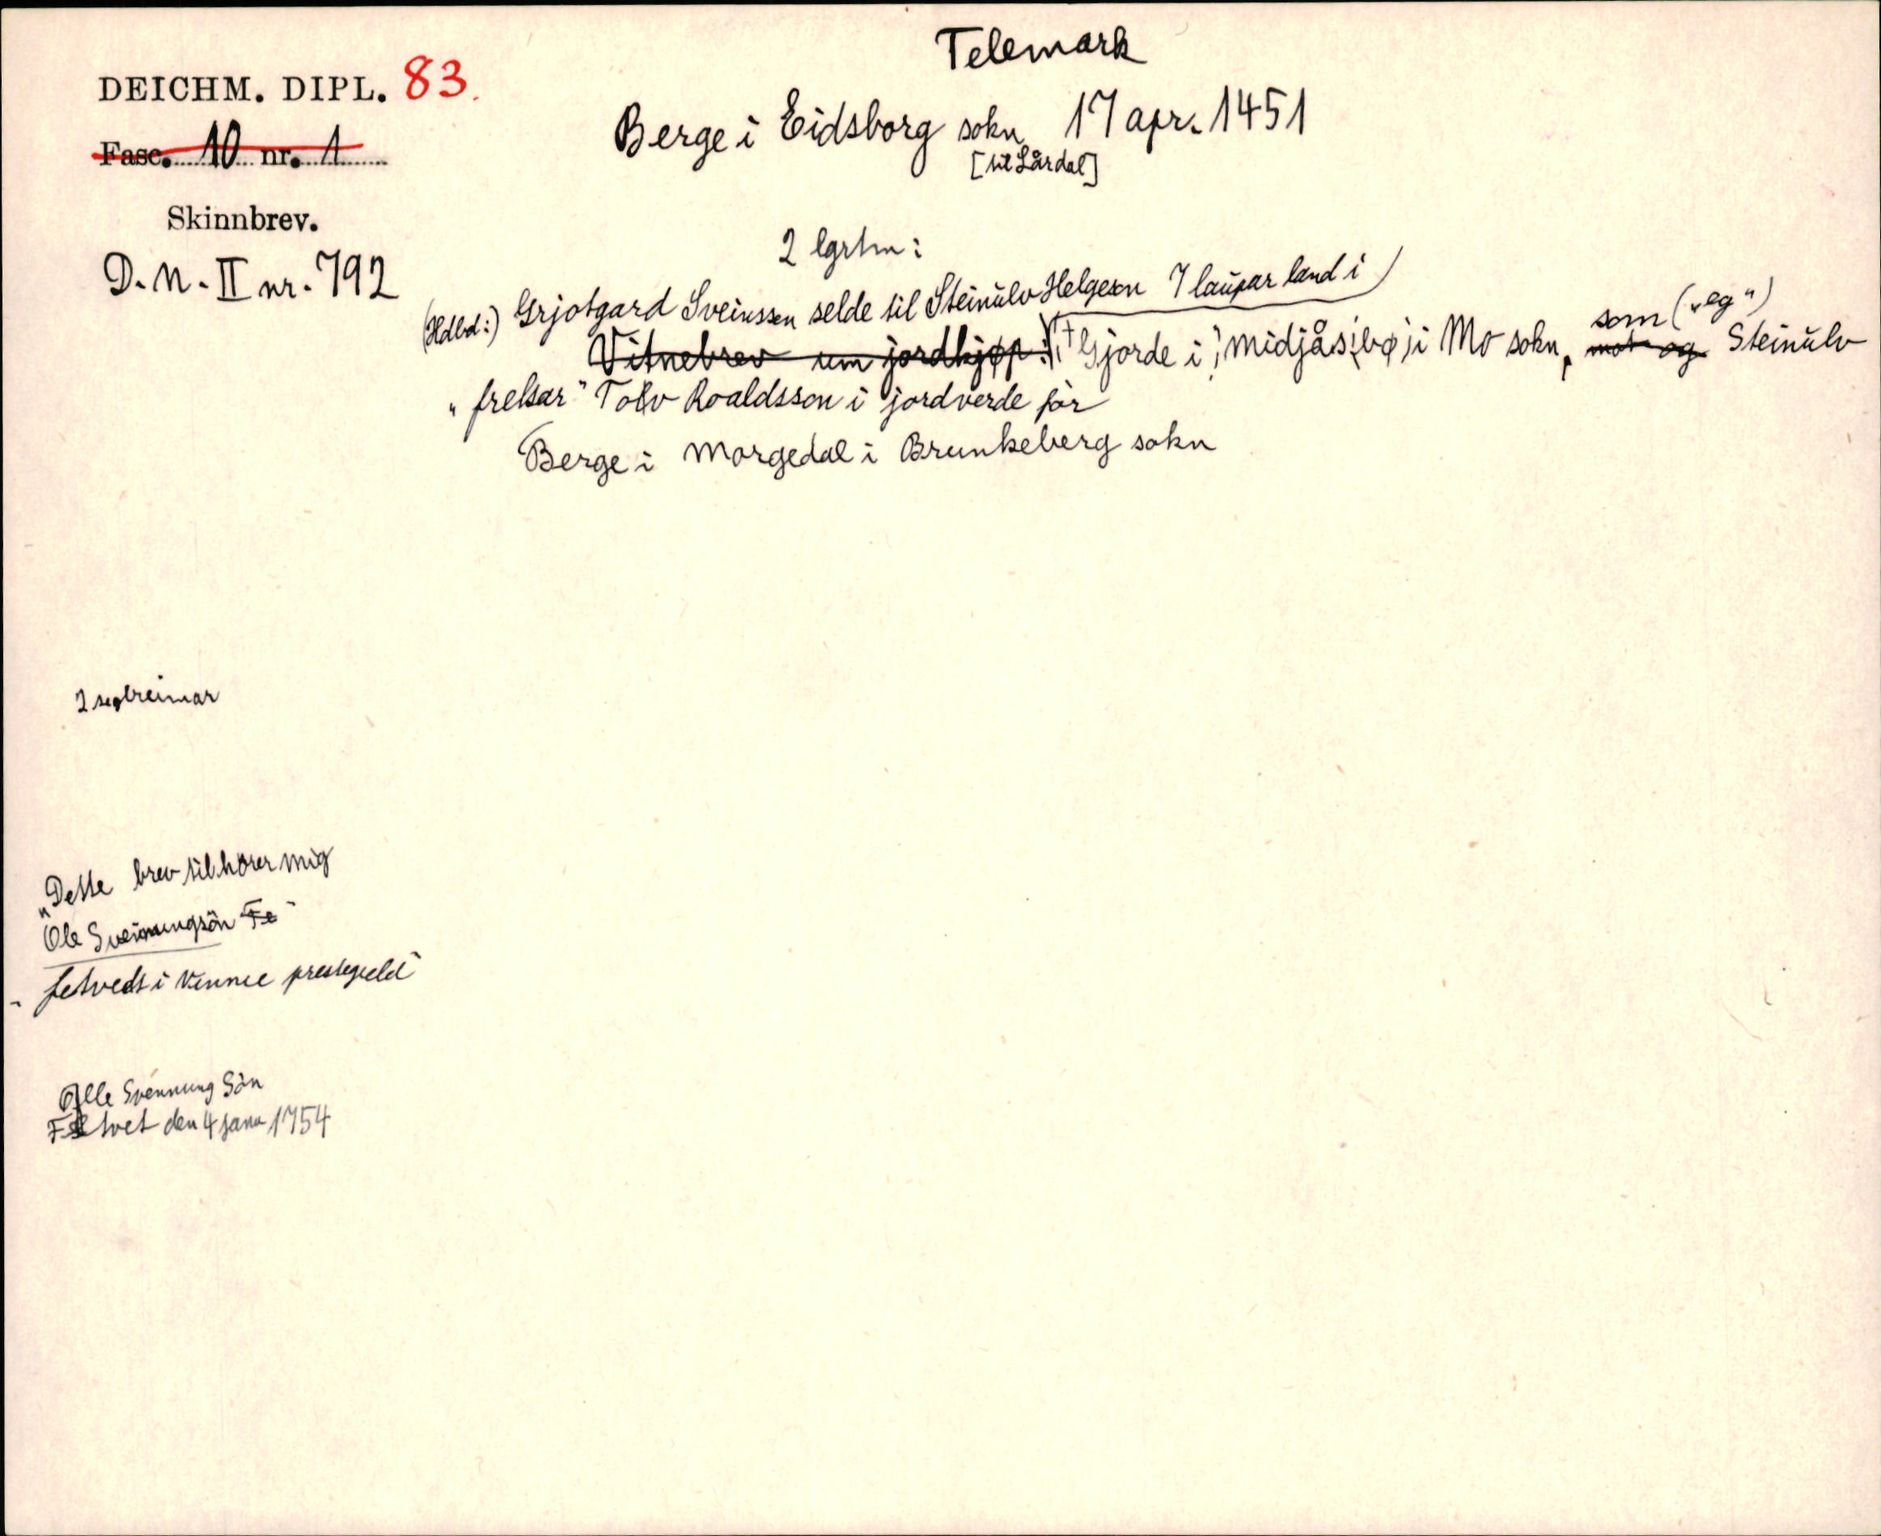 Telemark
DEICHM. DIPL. 83.
Berge i Eidsborg sokn 17 apr. 1451
[til Lårdal]
Fasc. 10 nr. 1
Skinnbrev.
D. N. II nr. 792
2 lgrtm:
(Hdbd:) Grjotgard Sveinsson selde til Steinulv Helgeson 7 laupar land i
Vitnebrev um jordkjøp: † Gjorde i Midjåsbø i Mo sokn, som („eg") mot og Steinulv
„frelsar" Tolv Roaldsson i jordverde for
Berge i Morgedal i Brunkeberg sokn
2 segbreimar
„Dette brev tilhører mig
Ole Sveinungsön Fe"
„fetvedt i Vinnie prestegield"
Olle Svennung Sön
tvet den 4 janu 1754